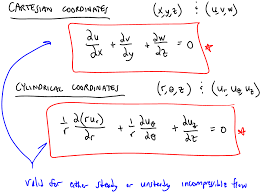 CARTESIAN COORDINATES (x,y,z) : (u,v,w)
∂u/∂x + ∂v/∂y + ∂w/∂z = 0 *
CYLINDRICAL COORDINATES (r,θ,z) : (ur, uθ, uz)
1/r ∂(rur)/∂r + 1/r ∂uθ/∂θ + ∂uz/∂z = 0 *
valid for either steady or unsteady incompressible flow